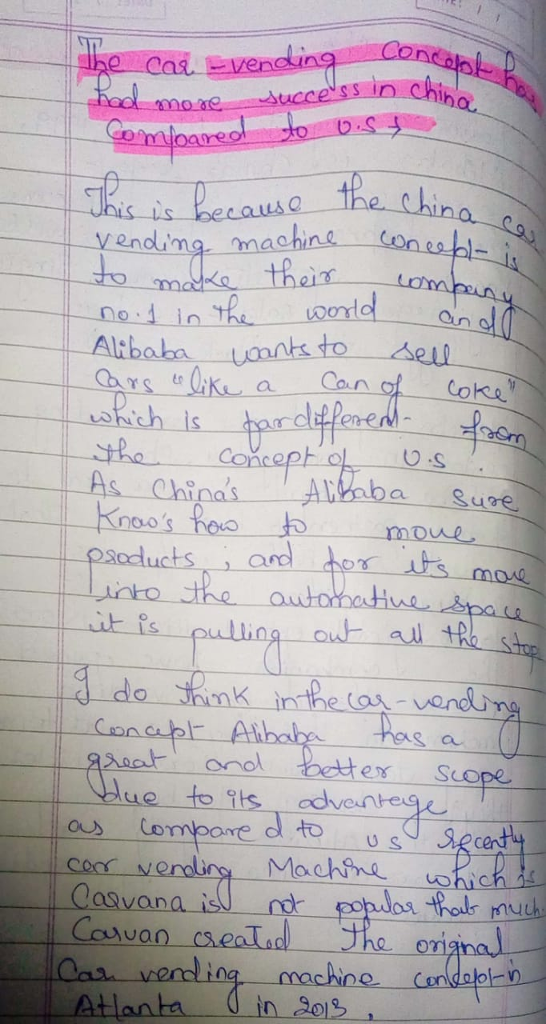 The car-vending Concept has
had more success in china
Compared to U.S ↓
This is because the china car
vending machine concept is
to make their company
no.1 in the world and
Alibaba wants to sell
Cars "like a Can of coke"
which is far different from
the concept of U.S.
As China's Alibaba sure
Know's how to move
products, and for it's move
into the automative space
it is pulling out all the stop
I do think in the car-vending
Concept Alibaba has a
great and better scope
due to its advantage
as compared to US recently
car vending Machine which is
Carvana is not popular that much.
Carvan created the original
Car vending machine concept in
Atlanta in 2013.